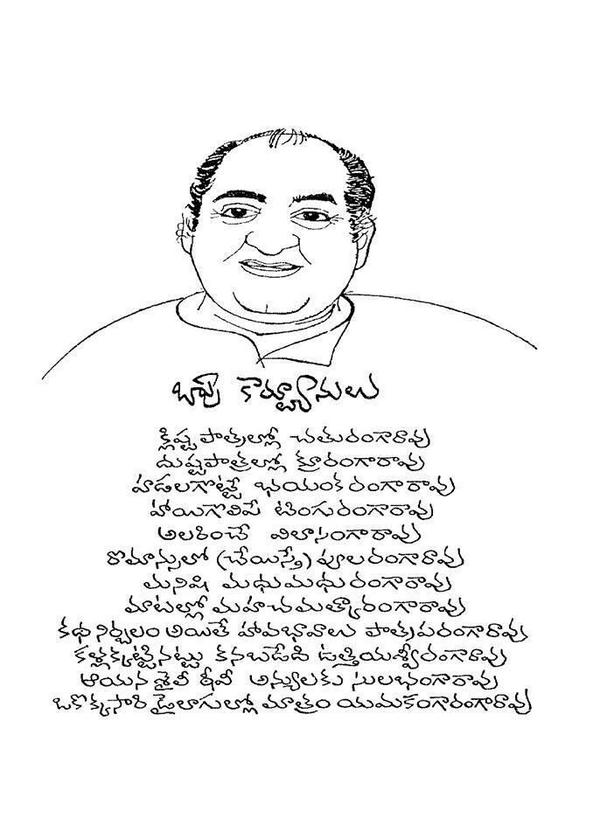 బాపు కార్ట్యూనులు
క్లిష్టపాత్రల్లో చతురంగారావు
దుష్టపాత్రల్లో క్రూరంగారావు
హడలగొట్టే భయంకరంగారావు
హాయిగొలిపే టింగురంగారావు
అలరించే విలాసంగారావు
రొమాన్సులో (చేయిస్తే) పూలరంగారావు
మనిషి మధుమధురంగారావు
మాటల్లో మహచమత్కారంగారావు
కథ నిర్బలం అయితే హావభావాలు పాత్రపరంగారావు
కళ్లక్కట్టినట్టు కనబడేది ఉత్తియశ్వీరంగారావు
ఆయన శైలీ ఠీవీ అన్యులకు సులభంగారావు
ఒకొక్కసారి డైలాగుల్లో మాత్రం యమకంగారంగారావు